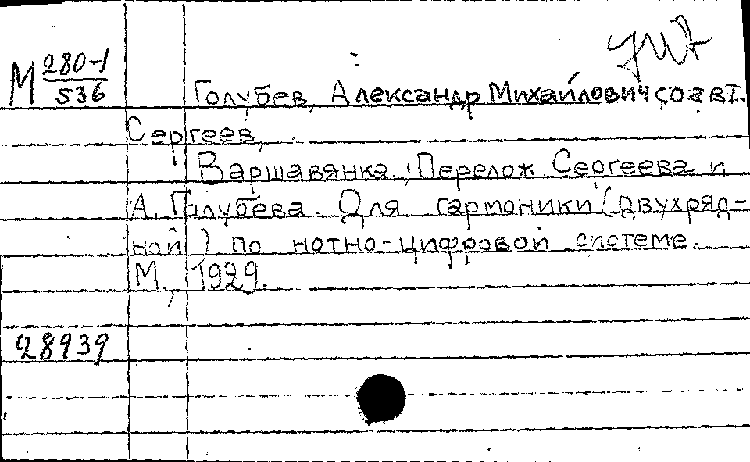 М 280-1
536
Голубев, Александр Михайлович соавт.
Сергеев,
Варшавянка; Перелож Сергеева и
А. Голубева. Для гармоники (двухряд-
ной) по нотно-цифровой системе.
М., 1929.
28939